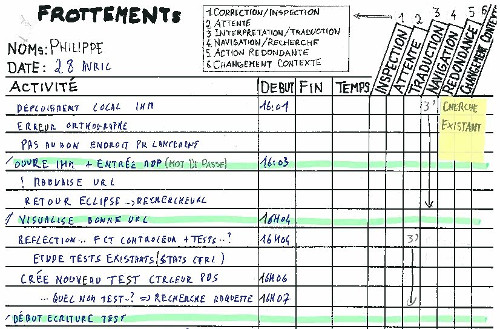 FROTTEMENTS
1 CORRECTION/INSPECTION
2 ATTENTE
3 INTERPRETATION/TRADUCTION
4 NAVIGATION/RECHERCHE
5 ACTION REDONDANTE
6 CHANGEMENT CONTEXTE
NOMS: PHILIPPE
DATE: 28 AVRIL
1 2 3 4 5 6
INSPECTION
ATTENTE
TRADUCTION
NAVIGATION
REDONDANCE
CHANGEMENT CONTEXTE
ACTIVITÉ DEBUT FIN TEMPS
DEPLOIEMENT LOCAL IHM 16:01 3 CHERCHE
ERREUR ORTHOGRAPHE EXISTANT
PAS AU BON ENDROIT PR LANCEMENT
OUVRE IHM + ENTRÉE MDP (MOT DE PASSE) 16:03
! MAUVAISE URL
RETOUR ECLIPSE
VISUALISE BONNE URL 16H04
REFLECTION.. FCT CONTROLEUR + TESTS..? 16H04 3
ETUDE TESTS EXISTANTS
CRÉE NOUVEAU TEST CTRLEUR 16H06
... QUEL NOM TEST..? => RECHERCHE 16H07
DÉBUT ECRITURE TEST